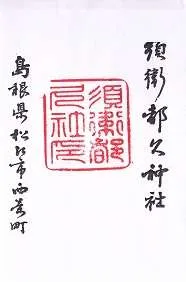 須衛都久神社
須衛都
久社印
島根県松江市西茶町